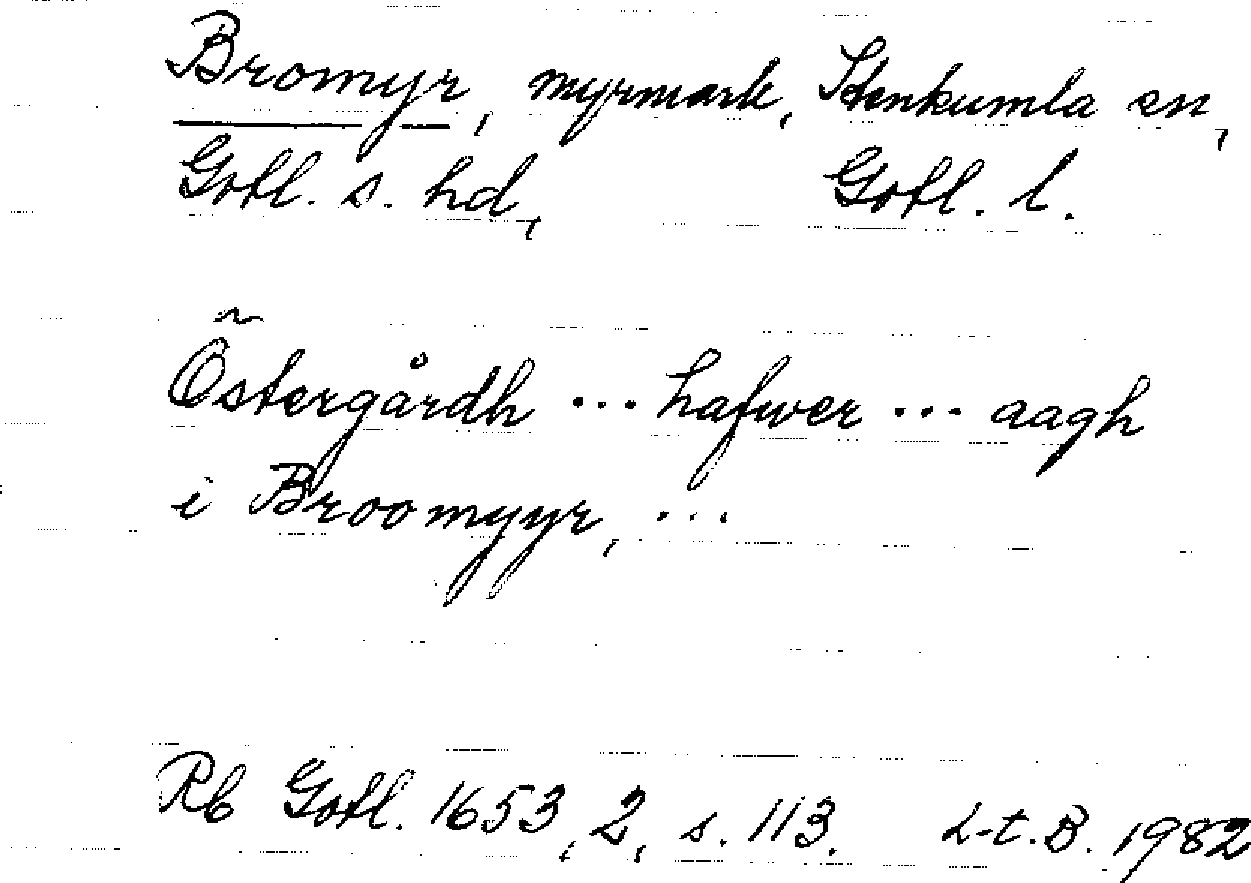 Bromyr, myrmark, Stenkumla sn,
Gotl. s. hd, Gotl. l.
Õstergårdh ... hafwer ... aagh
i Broomyyr, ...
Rb Gotl. 1653, 2, s. 113. L-t.B. 1982